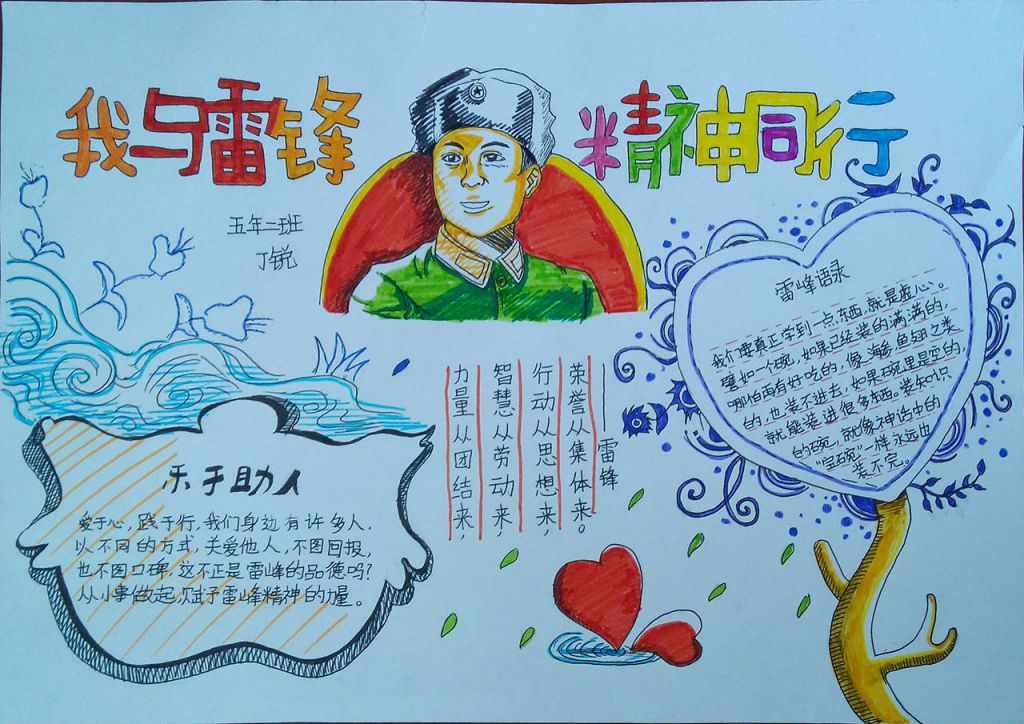 我与雷锋 精神同行
五年二班
丁锐
乐于助人
爱于心,践于行,我们身边有许多人,
以不同的方式,关爱他人,不图回报,
也不图口碑,这不正是雷峰的品德吗?
从小事做起,赋予雷峰精神的力量。
力量从团结来,
智慧从劳动来,
行动从思想来,
荣誉从集体来。
——雷锋
雷峰语录
我们要真正学到一点东西,就是虚心。
譬如一个碗,如果已经装的满满的,
哪怕再有好吃的,像海参鱼翅之类
的,也装不进去,如果碗里是空的,
就能装进很多东西。装知识
的碗,就像神话中的
“宝碗”一样永远也
装不完。